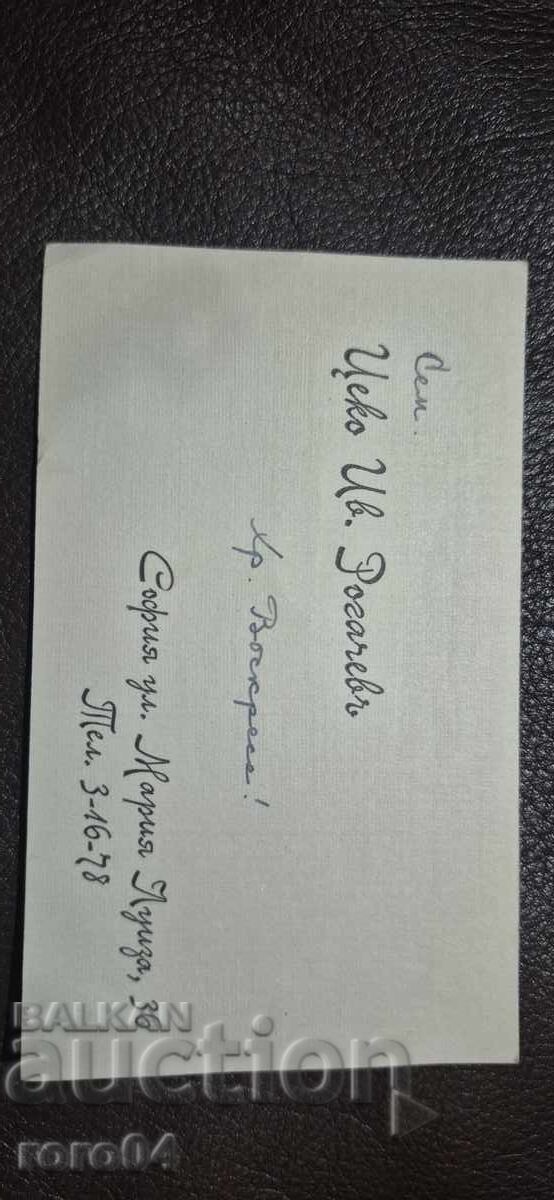 Сем.
Цеко Цв. Рогачевъ
Хр. Воскресе!
София ул. Мария Луиза, 36
Тел. 3-16-78
BALKAN
auction
roro04